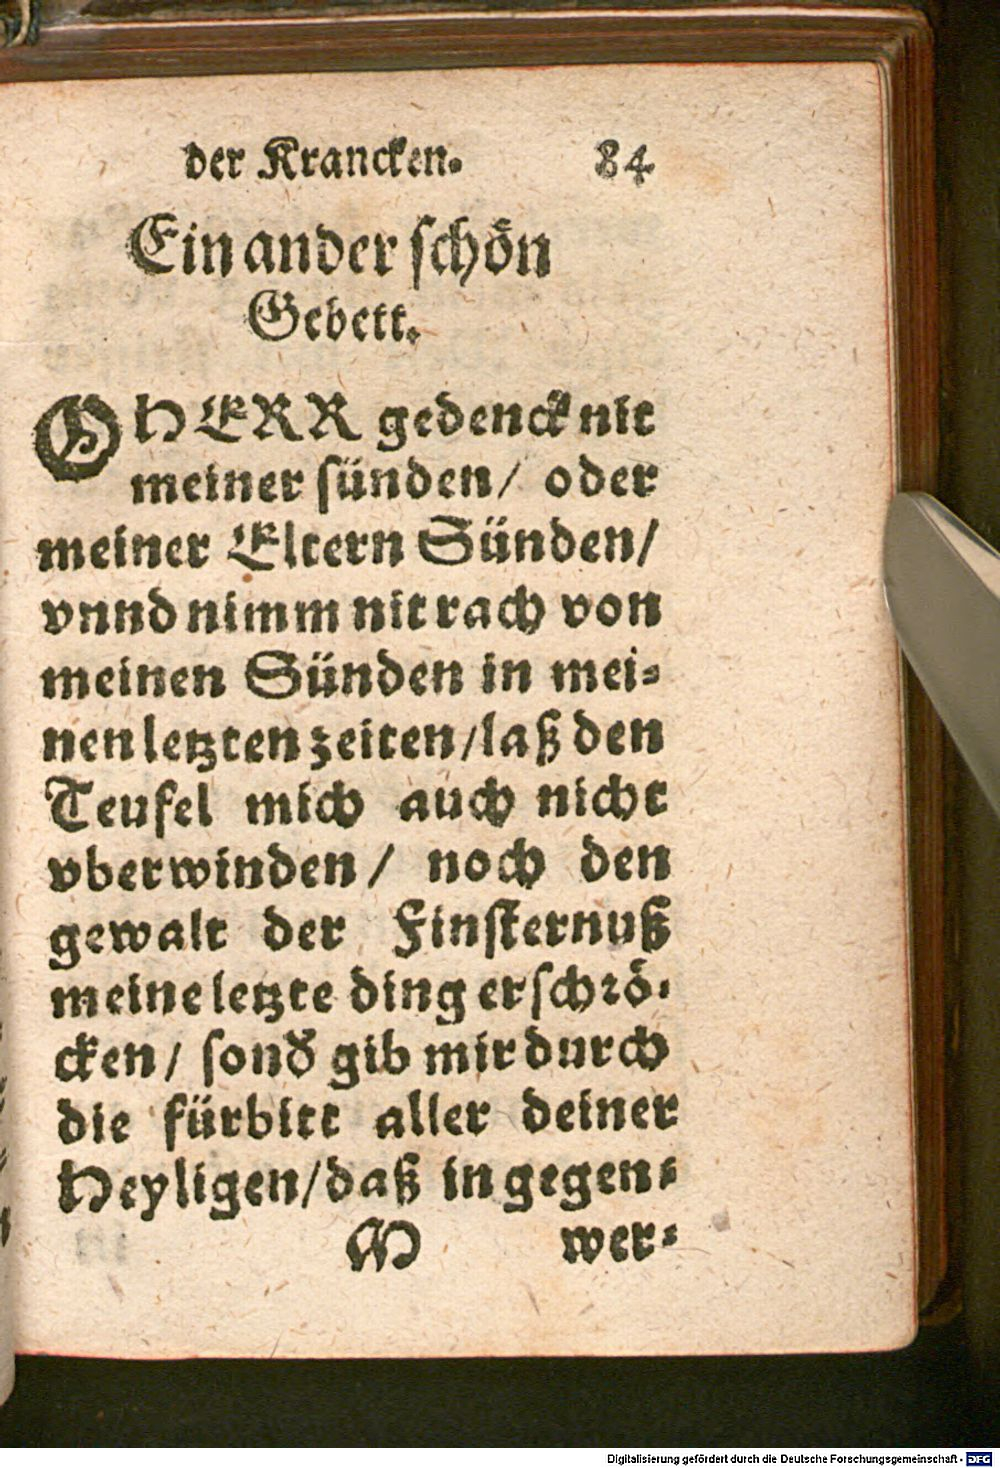 der Krancken. 84
Ein ander schön
Gebett.
O HERR gedenck nit
meiner sünden/ oder
meiner Eltern Sünden/
vnnd nimm nit rach von
meinen Sünden in mei-
nen letzten zeiten/laß den
Teufel mich auch nicht
vberwinden/ noch den
gewalt der Finsternuß
meine letzte ding erschrö-
cken/ sonđ gib mir durch
die fürbitt aller deiner
Heyligen/daß in gegen-
M wer-
Digitalisierung gefördert durch die Deutsche Forschungsgemeinschaft - DFG